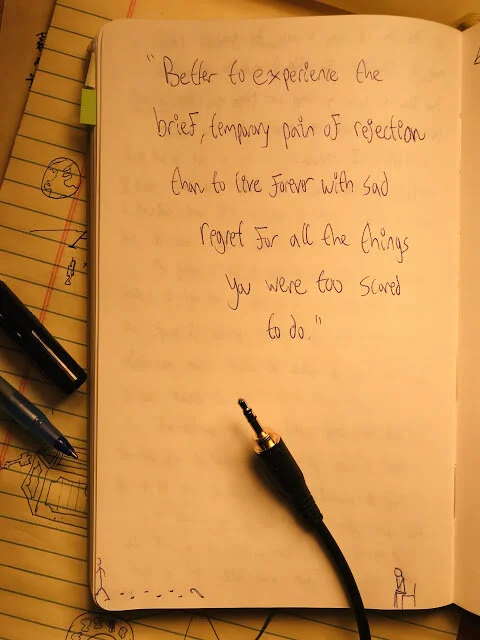 "Better to experience the
brief, temporary pain of rejection
than to live forever with sad
regret for all the things
you were too scared
to do."